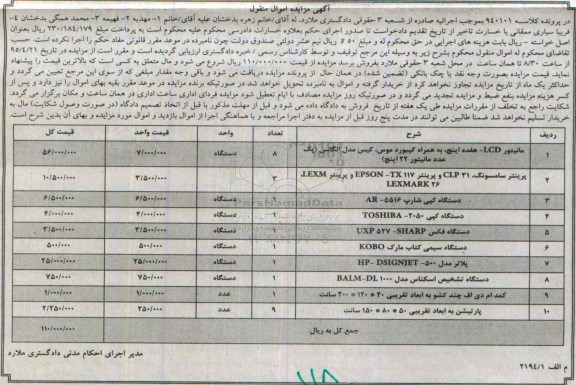 آگهی مزایده اموال منقول
در پرونده کلاسه ۹۴۰۱۰۱ بموجب اجرائیه صادره از شعبه ۳ حقوقی دادگستری ملارد، له آقای/خانم زهره بدخشان علیه آقای/خانم ۱- مهدیه ۲- فهیمه ۳- محمد همگی بدخشان ۴-
فریبا سیاری ممقانی با خسارت تاخیر از تاریخ تقدیم دادخواست تا صدور اجرای حکم بعلاوه خسارات دادرسی محکوم علیه محکوم است به پرداخت مبلغ ۲۳۰/۱۸۴/۱۷۹ ریال بعنوان
اصل خواسته - ریال بابت هزینه های اجرایی در حق محکوم له و مبلغ ۵۰# ریال نیم عشر در حق صندوق دولت چون نامبرده در موعد مقرر قانونی مفاد حکم را اجرا نکرده است حسب
تقاضای محکوم له اموال منقول محکوم بشرح زیر به وسیله این مرجع توقیف و توسط کارشناس رسمی / خبره دادگستری ارزیابی گردیده است و مقرر است از مزایده در تاریخ ۹۵/۴/۲۱
از ساعت ۸/۳۰ تا همان ساعت در محل شعبه ۳ حقوقی ملارد بفروش برسد مزایده از قیمت ۱۱۰/۰۰۰/۰۰۰ ریال شروع می شود و مال متعلق به کسی است که بالاترین قیمت را پیشنهاد
نماید. قیمت مزایده بصورت وجه نقد یا چک بانکی (تضمین شده) در همان حال از پرونده مزایده دریافت می شود و باقی وجه مقدار مبلغی که از سوی این مرجع تعیین می گردد و
حداکثر یک ماه از تاریخ مزایده تجاوز نخواهد کرد از خریدار گرفته و اموال به نامبرده تحویل خواهد شد در صورتیکه برنده مزایده در موعد مقرر بقیه بهای اموال را نپردازد و پس از
کسر هزینه مزایده بنفع ضبط و مزایده تجدید می گردد و در صورتیکه روز مزایده مصادف با ایام تعطیل شود مزایده فردای اداری ساعت اداری در همان ساعت و مکان برگزار می گردد.
شکایت راجع به تخلف از مقررات مزایده طی یک هفته از تاریخ فروش به دادگاه داده می شود و قبل از مهلت مذکور یا قبل از اتخاذ تصمیم دادگاه (در صورت وصول شکایت) مال به
خریدار تسلیم نخواهد شد ضمنا طالبین می توانند در مدت پنج روز قبل از مزایده به دفتر اجرا مراجعه و با هماهنگی اجرا از اموال بازدید و اموال مورد مزایده و بهای آن بدین شرح است.
ردیف شرح تعداد واحد قیمت واحد قیمت کل
۱ مانیتور LCD- هفده اینچ، به همراه کیبورد موس، کیس مدل الگانس (یک عدد مانیتور ۲۲ اینچ) ۸ دستگاه ۷/۰۰۰/۰۰۰ ۵۶/۰۰۰/۰۰۰
۲ پرینتر سامسونگ، CLP ۳۱ و پرینتر EPSON -TX ۱۱۷ و پرینتر LEXM، LEXMARK ۲۶ ۳ دستگاه ۳/۵۰۰/۰۰۰ ۱۰/۵۰۰/۰۰۰
۳ دستگاه کپی شارپ AR -۵۵۱۶ ۱ دستگاه ۶/۵۰۰/۰۰۰ ۶/۵۰۰/۰۰۰
۴ دستگاه کپی TOSHIBA -۲۰۵۰ ۱ دستگاه ۴/۰۰۰/۰۰۰ ۴/۰۰۰/۰۰۰
۵ دستگاه فکس UXP ۵۲۷ -SHARP ۱ دستگاه ۳/۵۰۰/۰۰۰ ۳/۵۰۰/۰۰۰
۶ دستگاه سیمی کتاب مارک KOBO ۱ دستگاه ۵۰۰/۰۰۰ ۵۰۰/۰۰۰
۷ پلاتر مدل ۵۰۰- HP- DSIGNJET ۱ دستگاه ۲۵/۰۰۰/۰۰۰ ۲۵/۰۰۰/۰۰۰
۸ دستگاه تشخیص اسکناس مدل ۱۰۰۰ BALM-DL ۱ دستگاه ۷۵۰/۰۰۰ ۷۵۰/۰۰۰
۹ کمد ام دی اف چند کشو به ابعاد تقریبی ۴۰ * ۱۲۰ * ۲۰۰ سانت ۱ عدد ۱/۰۰۰/۰۰۰ ۱/۰۰۰/۰۰۰
۱۰ پارتیشن به ابعاد تقریبی ۵۰ * ۸۰ * ۱۵۰ سانت ۹ عدد ۲۵۰/۰۰۰ ۲/۲۵۰/۰۰۰
جمع کل به ریال ۱۱۰/۰۰۰/۰۰۰
مدیر اجرای احکام مدنی دادگستری ملارد
م الف ۲۱۹۴/۱